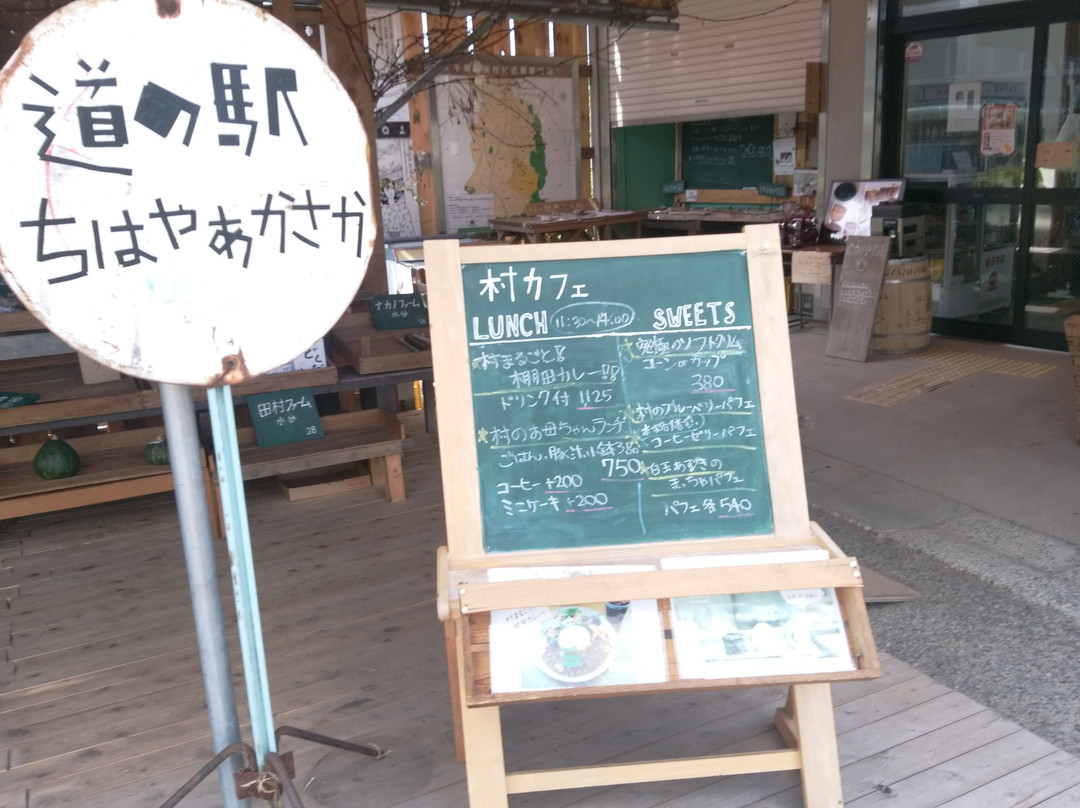 道の駅
ちはやあかさか
村カフェ
LUNCH 11:30~14:00
村まるごと!!
棚田カレー!!
ドリンク付 1125
村のお母ちゃんランチ
ごはん、豚汁、小鉢3品
750
コーヒー +200
ミニケーキ +200
SWEETS
究極のソフトクリーム
コーン or カップ
380
村のブルーベリーパフェ
コーヒーゼリーパフェ
白玉あずきの
まっちゃパフェ
パフェ各 540
ナカノファーム
水分
田村ファーム
水分
28